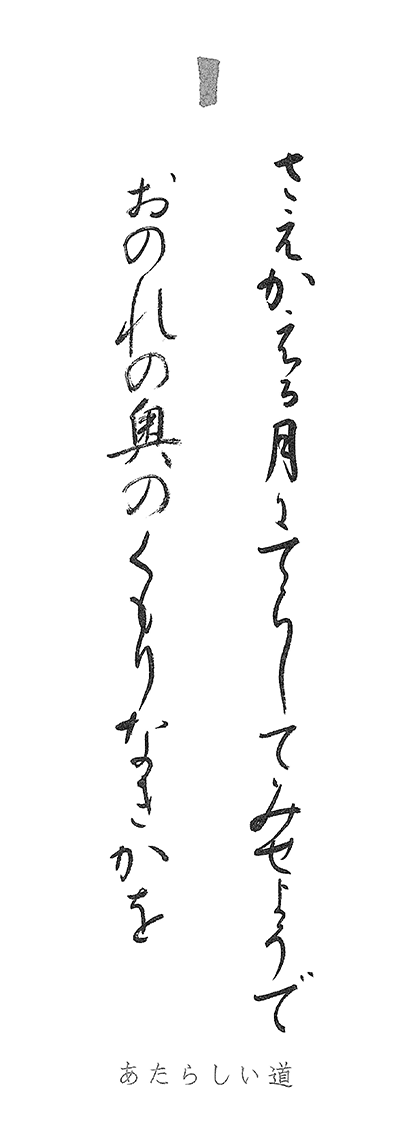 さえかえる月にてらしてみせようで
おのれの奥のくもりなきかを
あたらしい道